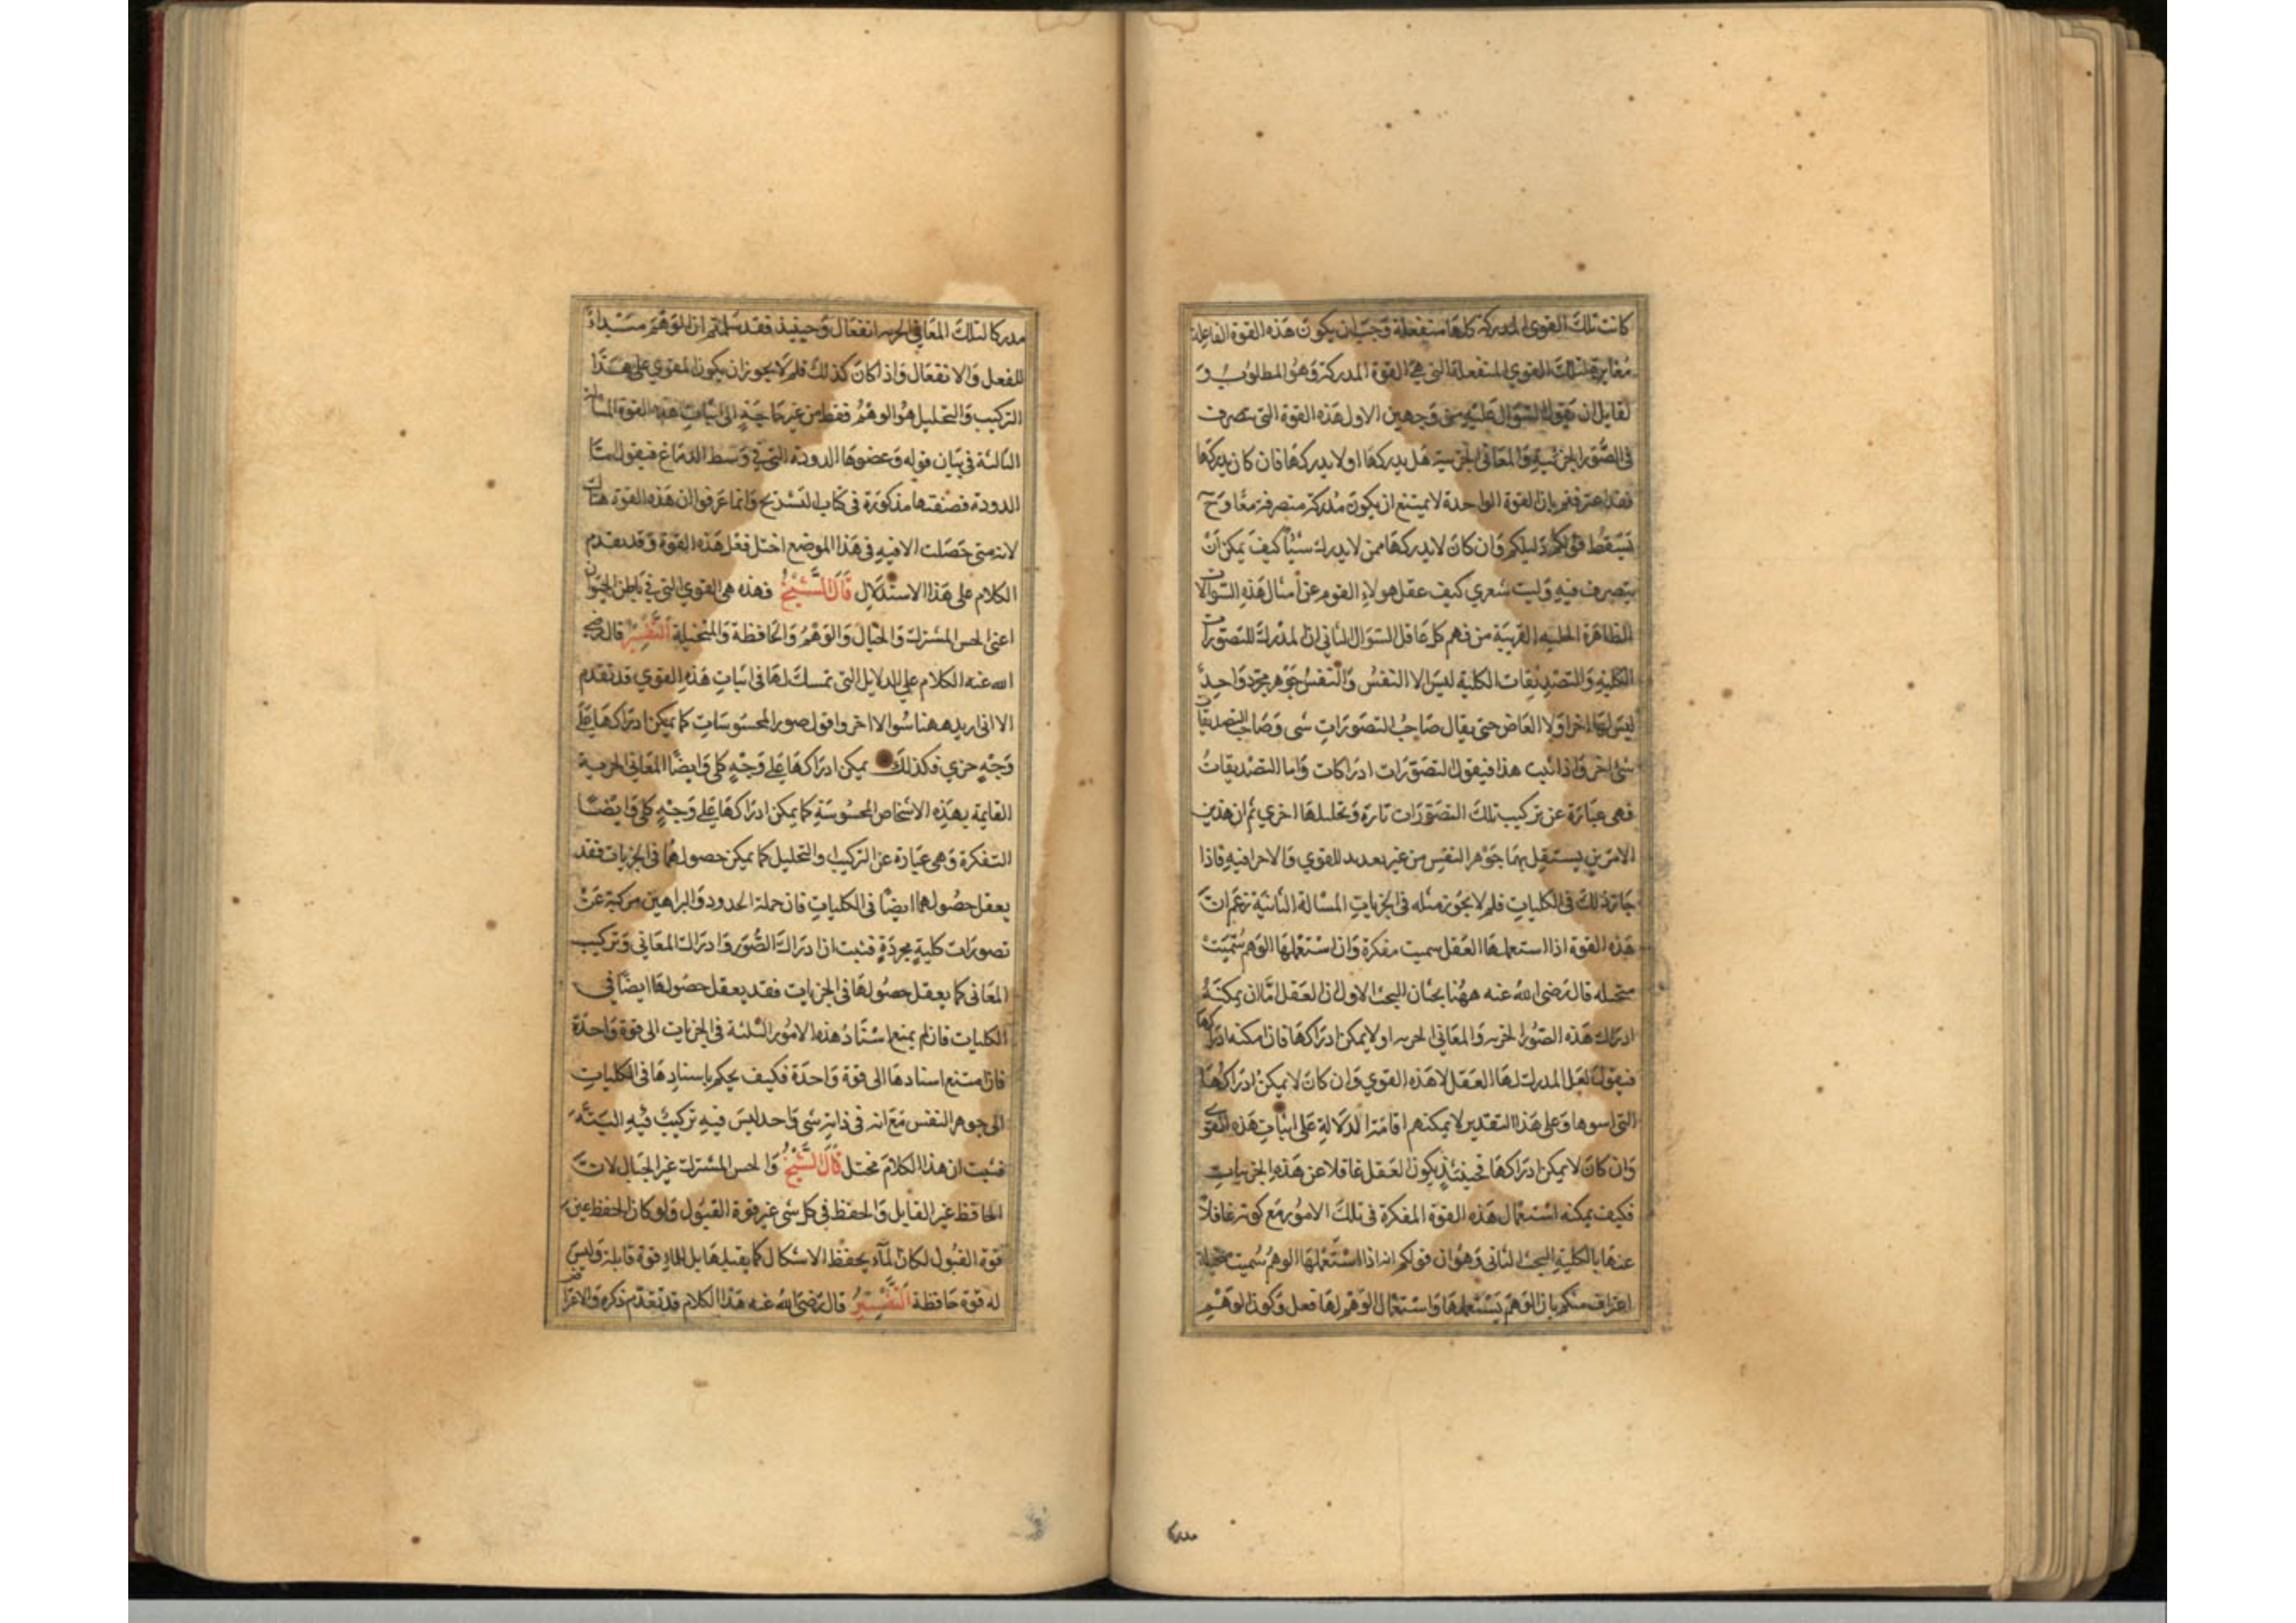 كانت تلك القوى المدركة كلها منفعلة وجب ان يكون هذه القوة الفاعلة
مغايرة لتلك القوي المنفعلة التي هي القوة المدركة وهو المطلوب و
لقايل ان يقول السوال عليه من وجهين الاول هذه القوة التي تتصرف
في الصور الجزئية والمعاني الجزيية هل يدركها او لا يدركها فان كان يدركها
فقد اعترفتم بان القوة الواحدة لا يمتنع ان يكون مدركة متصرفة معا وح
يسقط قولكم دليلكم وان كان لا يدركها فمن لا يدرك شيئا كيف يمكن ان
يتصرف فيه وليت شعري كيف عقل هولاء القوم عن امثال هذه السوالات
الظاهرة الجلية القريبة من فهم كل عاقل السوال الثاني ان المدرك للتصورات
الكلية والتصديقات الكلية ليس الا النفس والنفس جوهر مجرد واحد
ليس لها اجزا ولا ابعاض حتى يقال صاحب التصورات شى وصاحب التصديقات
شى اخر واذا ثبت هذا فيقول التصورات ادراكات واما التصديقات
فهى عبارة عن تركيب تلك التصورات تارة وتحليلها اخري ثم ان هذين
الامرين يستقل بهما جوهر النفس من غير تعديد للقوي والاجزا فيه فاذا
جاز ذلك فى الكليات فلم لا يجوز مثله فى الجزيات المسالة الثانية زعم ان
هذه القوة اذا استعملها العقل سميت مفكرة وان استعملها الوهم سميت
متخيله قال رضى الله عنه ههنا بحثان البحث الاول ان العقل اما ان يمكنه
ادراك هذه الصور الجزيه والمعاني الجزيه او لا يمكن ادراكها فان امكنه ادراكها
فيقول لعل المدرك لها العقل لا هذه القوي وان كان لا يمكن ادراكها
التى اسوها وعلى هذا التقدير لا يمكنهم اقامة الدلالة على اثبات هذه القوي
وان كان لا يمكن ادراكها فحينئذ يكون العقل غافلا عن هذه الجزييات
فكيف يمكنه استعمال هذه القوة المفكرة فى تلك الامور مع كونه غافلا
عنها بالكلية البحث الثانى وهو ان قولكم انه اذا استعملها الوهم سميت متخيلة
اعتراف منكم بان الوهم يستعملها واستعمال الوهم لها فعل وكون الوهم
مدركا
مدركا لتلك المعاني الجزيه انفعال وحينيذ فقد سلمتم ان الوهم مبداء
للفعل والانفعال واذا كان كذلك فلم لا يجوز ان يكون المقوي على هذا
التركيب والتحليل هو الوهم فقط من غير حاجة الى اثبات هذه القوة المسالة
الثالثة في بيان قوله وعضوها الدودة التي في وسط الدماغ فيقول اما
الدودة فصفتها مذكورة في كتاب التشريح وانما عرفوا ان هذه القوة هناك
لانه متى حصلت الافة في هذا الموضع اختل فعل هذه القوة وقد تقدم
الكلام على هذا الاستدلال قال الشيخ فهذه هى القوي التى في باطن الحيوان
اعنى الحس المشترك والخيال والوهم والحافظة والمتخيلة التفسير قال رضى
الله عنه الكلام علي الدلايل التى تمسك لها فى اثبات هذه القوي قد تقدم
الا انى اريد ههنا سوالا اخر واقول صور المحسوسات كما يمكن ادراكها علي
وجه جزي فكذلك يمكن ادراكها علي وجه كلي وايضا المعاني الجزيية
القايمة بهذه الاشخاص المحسوسة كما يمكن ادراكها علي وجه كلي وايضا
التفكرة وهى عبارة عن التركيب والتحليل كما يمكن حصولهما فى الجزيات فقد
يعقل حصولهما ايضا فى الكليات فان جملة الحدود والبراهين مركبة عن
تصورات كلية مجردة فثبت ان ادراك الصور وادراك المعاني وتركيب
المعانى كما يعقل حصولها فى الجزيات فقد يعقل حصولها ايضا في
الكليات فان لم يمنع استناد هذه الامور الثلثة في الجزيات الى قوة واحدة
فان امتنع اسنادها الى قوة واحدة فكيف يحكم باسنادها فى الكليات
الى جوهر النفس مع انه فى ذاته شى واحد ليس فيه تركيب فيه البتة
فثبت ان هذا الكلام مختل قال الشيخ والحس المشترك غير الخيال لان
الحافظ غير القابل والحفظ في كل شى غير قوة القبول ولو كان الحفظ عين
قوة القبول لكان الماء يحفظ الاشكال كما يقبلها بل للماء قوة قابلة وليس
له قوة حافظة التفسير قال رضى الله عنه هذا الكلام قد تقدم ذكره والاعتراض